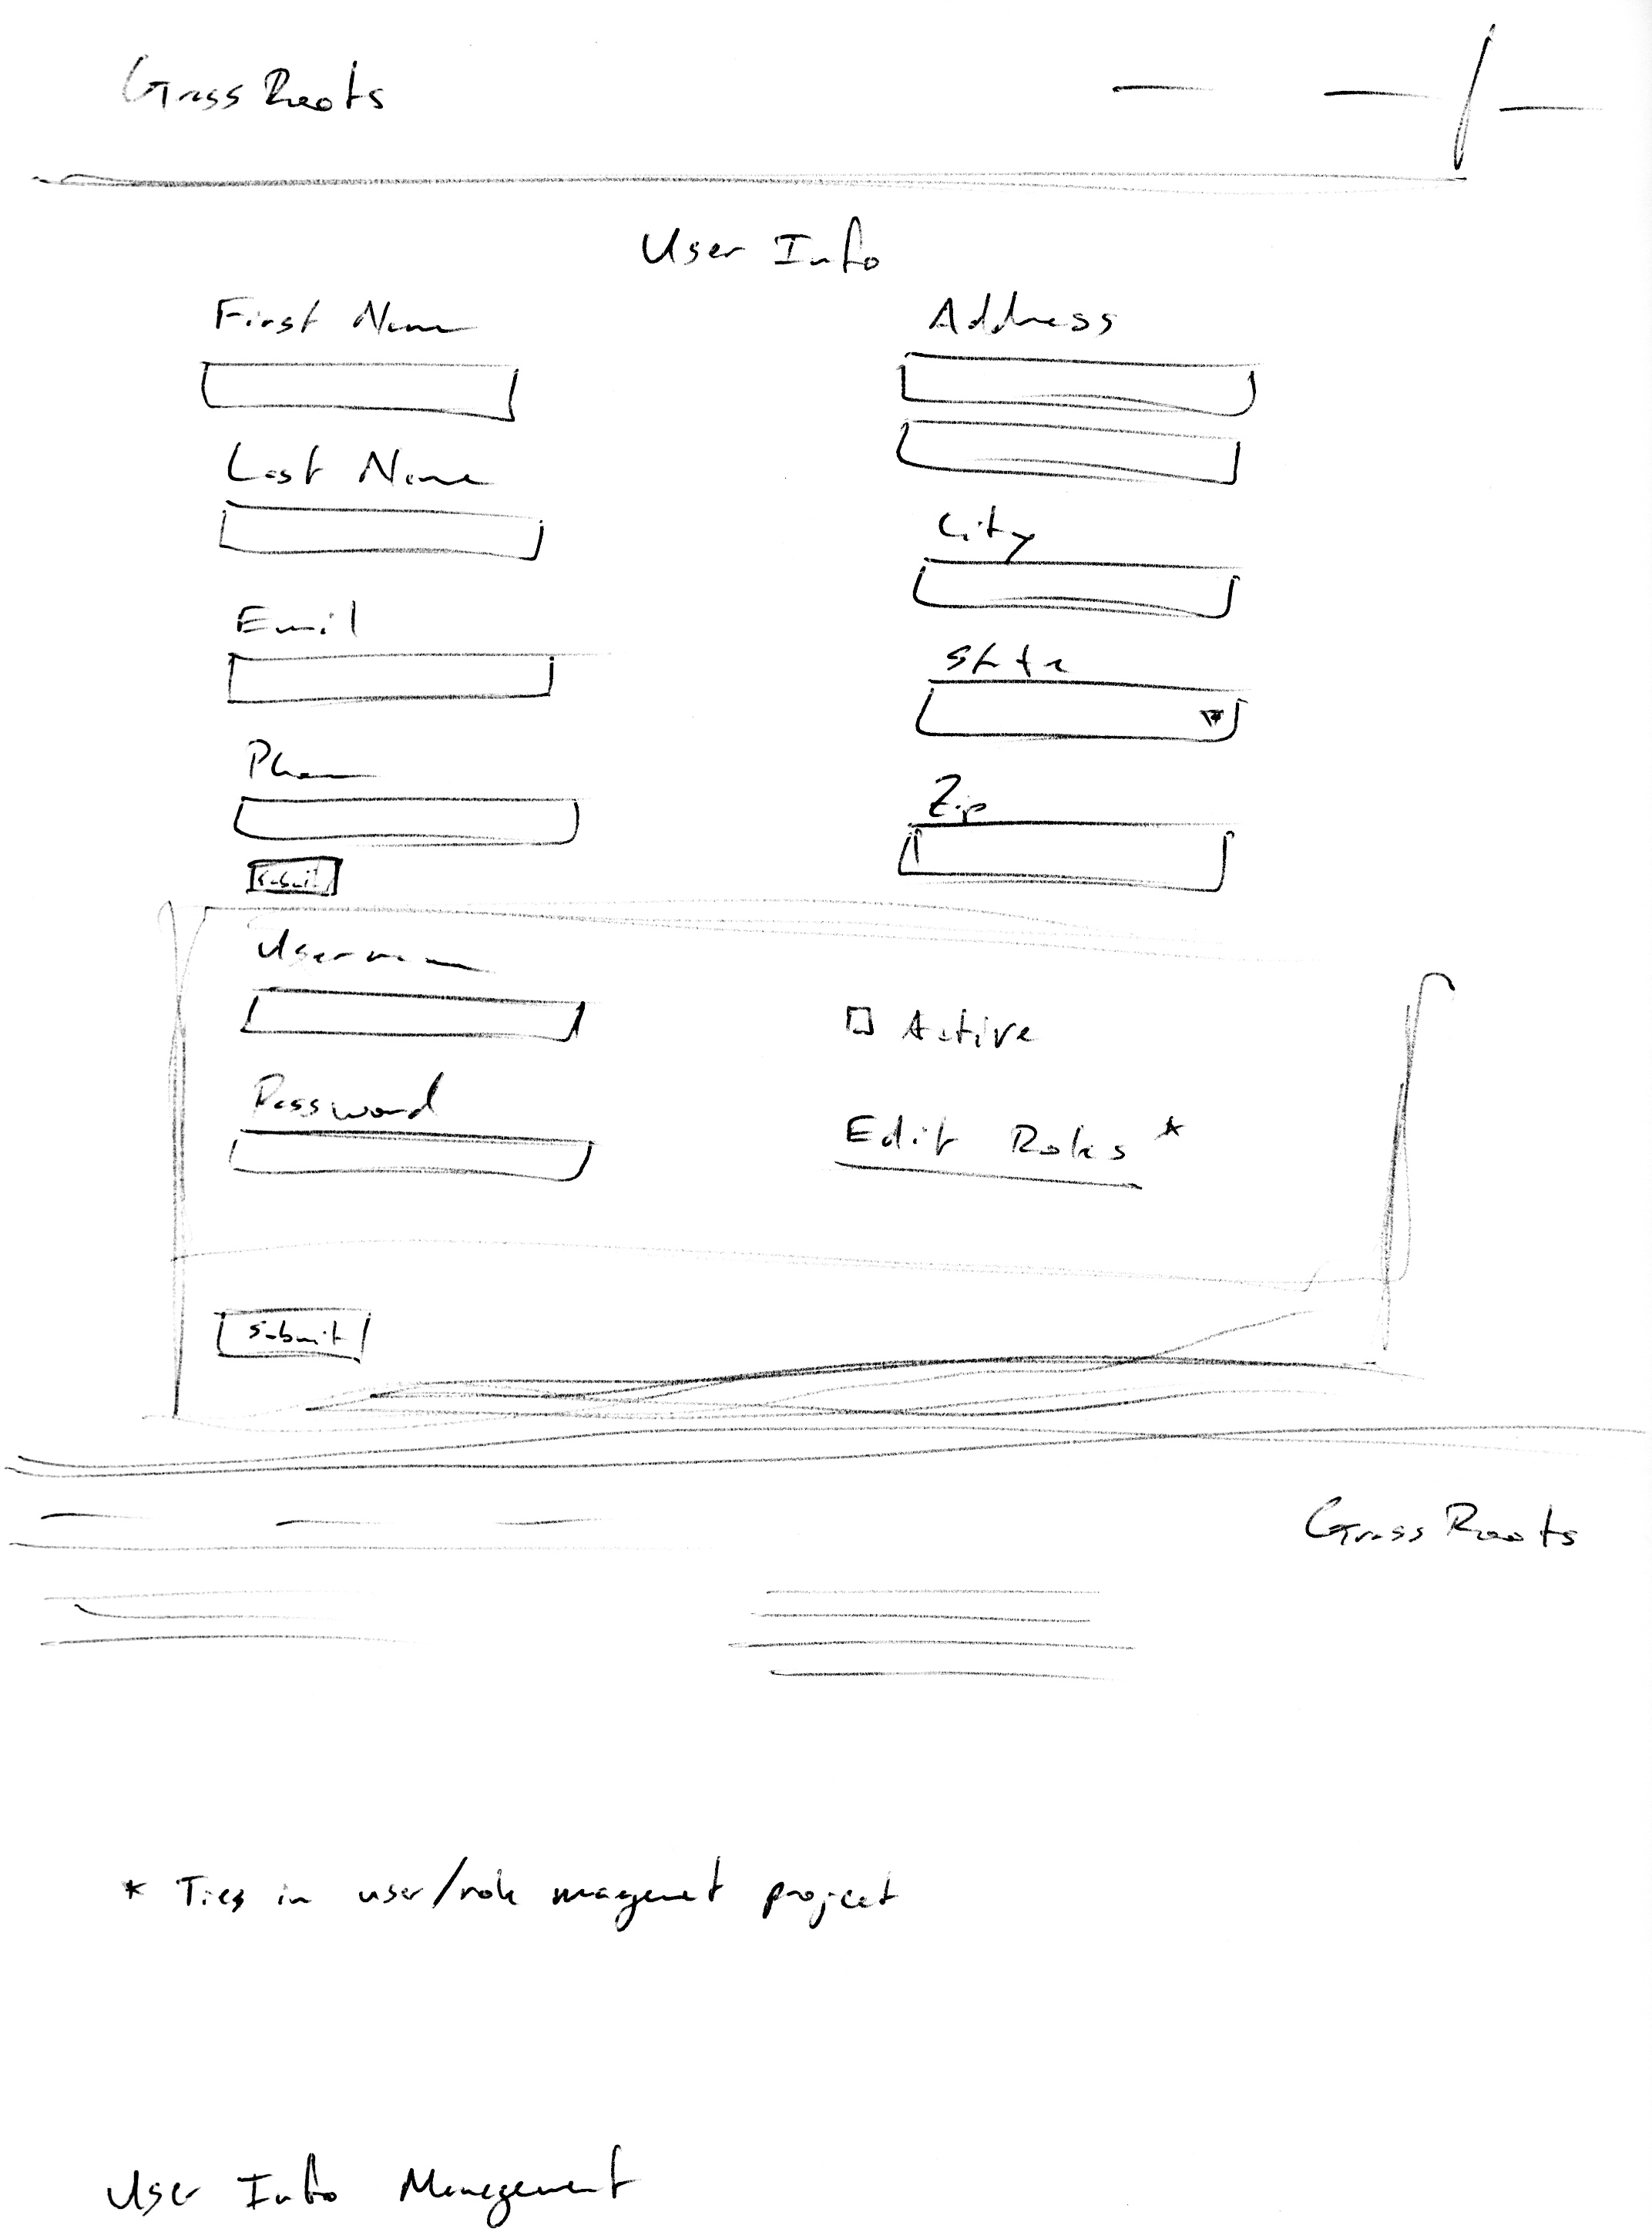 Grass Roots
User Info
First Name
Last Name
Email
Phone
Submit
Address
City
State
Zip
Username
Password
Active
Edit Roles *
Submit
Grass Roots
* Ties in user/role managemet project
User Info Management